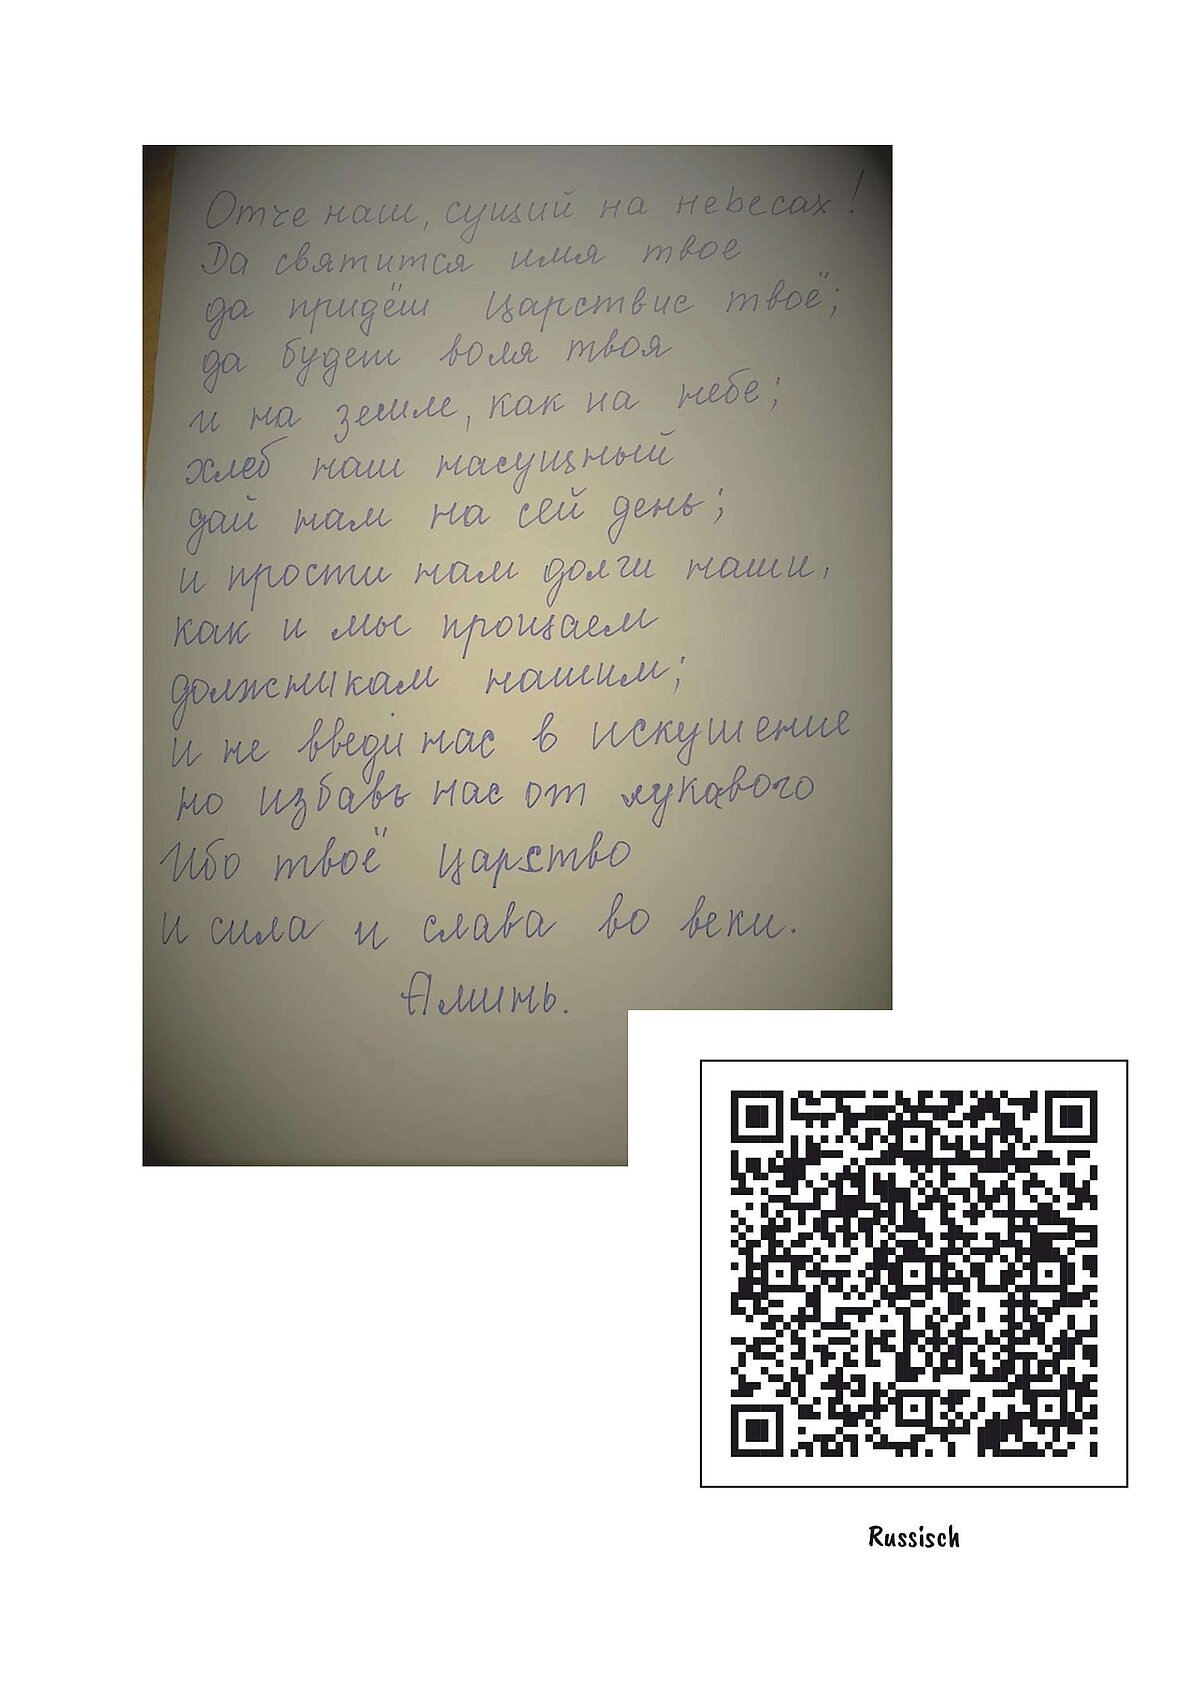 Отче наш, сущий на небесах!
Да святится имя твое
да придёт Царствие твоё;
да будет воля твоя
и на земле, как на небе;
хлеб наш насущный
дай нам на сей день;
и прости нам долги наши,
как и мы прощаем
должникам нашим;
и не введи нас в искушение
но избавь нас от лукавого
Ибо твоё Царство
и сила и слава во веки.
Аминь.
Russisch